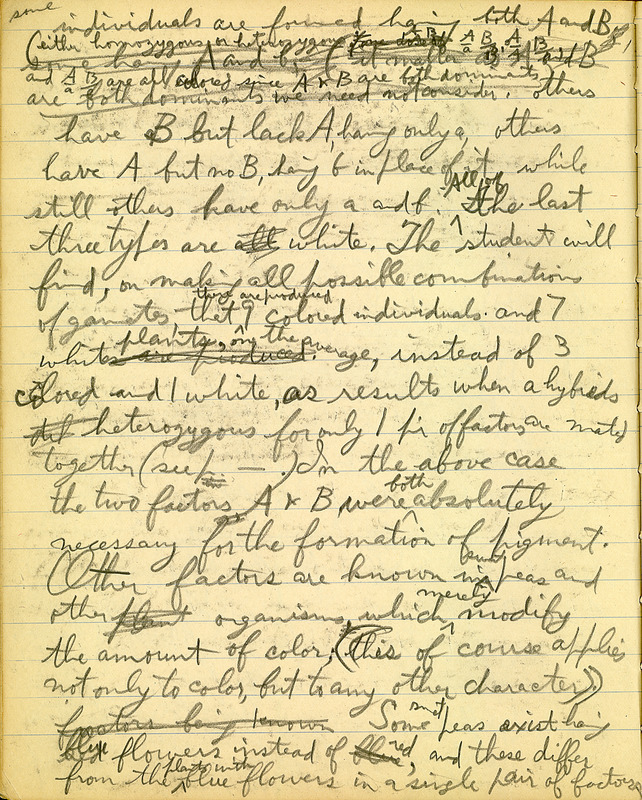 some
individuals are formed having both A and B
(either homozygous or heterozygous
some having A and b, (it matter and B
and A/a B/b are all colored since A & B are both dominants
are both dominants we need not consider. others
have B but lack A, having only a, others
have A but no B, having b in place of it while
All of
still others have only a and b. The last
three types are all white. The student will
find, on making all possible combinations
there are produced
of gametes that 9 colored individuals and 7
plants, on the average, instead of 3
white are produced.
colored and 1 white, as results when a hybrids
heterozygous for only 1 pir of factors are mated
together (see p. — .) In the above case
both
the two factors A & B, were absolutely
necessary for the formation of pigment.
sweet
Other factors are known in peas and
merely
other plant organisms, which modify
the amount of color, (this of course applies
not only to color, but to any other character).
factors being known Some sweet peas exist having
blue flowers instead of blue red, and these differ
plants with
from the blue flowers in a single pair of factors,